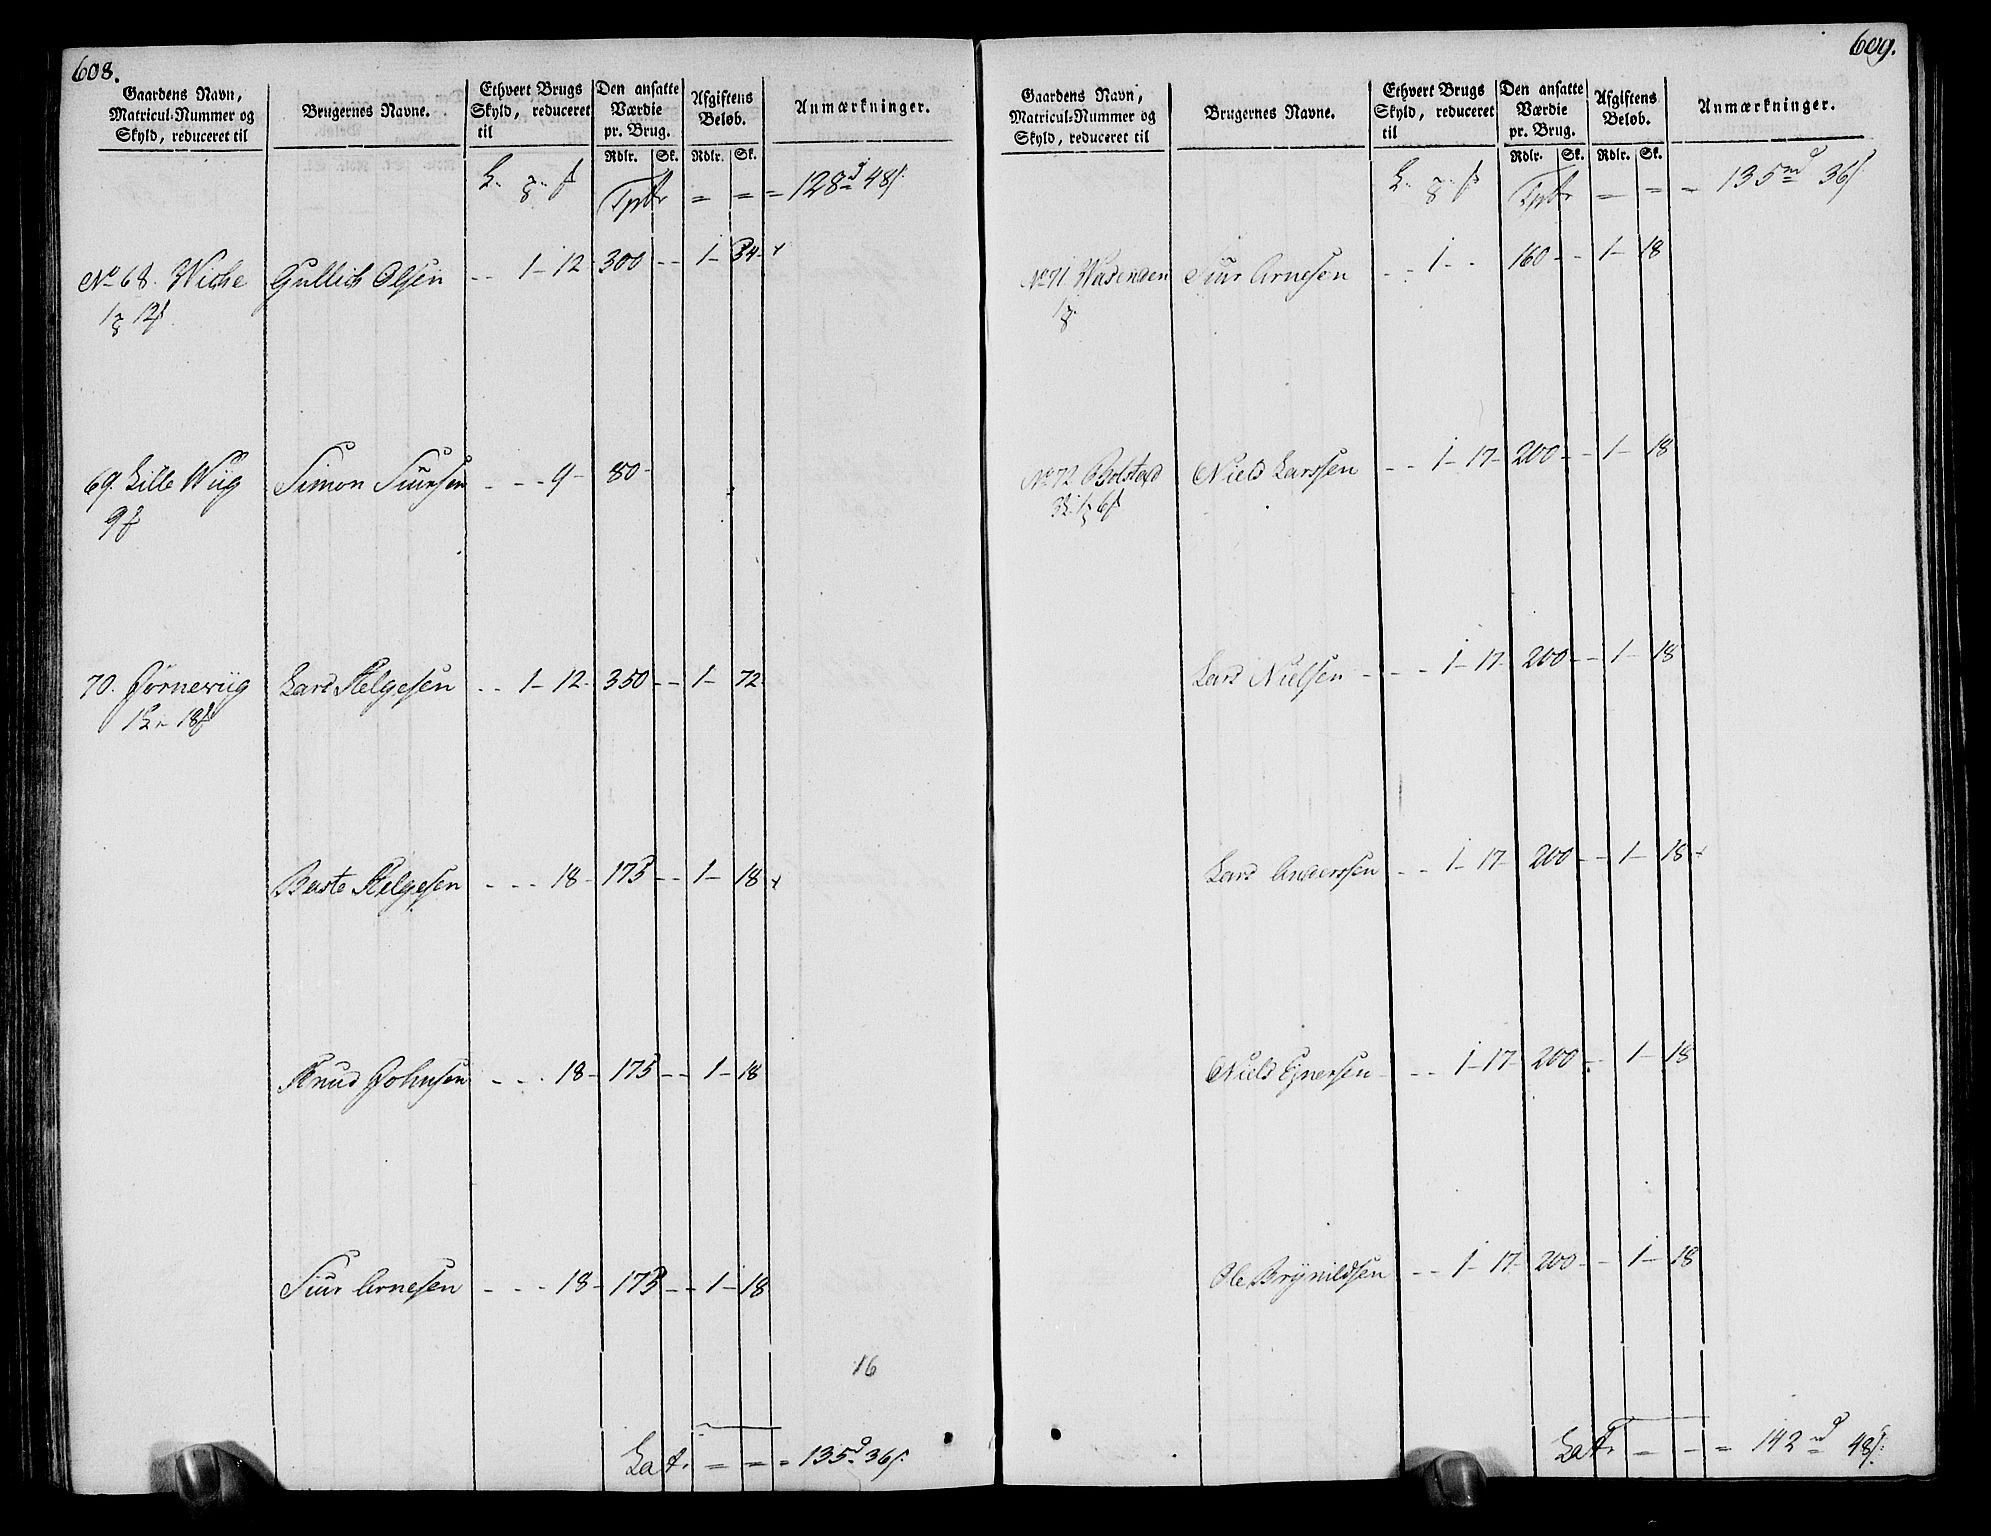 608.
Gaardens Navn, Matricul-Nummer og Skyld, reduceret til | Brugernes Navne. | Ethvert Brugs Skyld, reduceret til | Den ansatte Værdie pr. Brug. Rdlr. Sk. | Afgiftens Beløb. Rdlr. Sk. | Anmærkninger.
Tprtr = = = 128 48
No 68. Wiche Gullich Olsen - - 1 - 12 300 - - 1 - 34
1 12
69. Lille Wiig Simon Siursen - - - 9 - 80 -
9
70. Jørnewiig Lars Helgesen - - 1 - 12 - 350 - - 1 - 72
18
Baste Helgesen - - - 18 - 175 - - 1 - 18
Knud Johnsen - - - 18 - 175 - - 1 - 18
Siur Arnesen - - - 18 - 175 - - 1 - 18
16
Lat. = = = 135 36
609.
Gaardens Navn, Matricul-Nummer og Skyld, reduceret til | Brugernes Navne. | Ethvert Brugs Skyld, reduceret til | Den ansatte Værdie pr. Brug. Rdlr. Sk. | Afgiftens Beløb. Rdlr. Sk. | Anmærkninger.
Tprtr = = = 135 36
No 71 Siur Arnesen - - 1 - - 160 - - 1 - 18
1
No 72 Bolstad Niels Larssen - - 1 - 17 - 200 - - 1 - 18
6
Lars Nielsen - - - 1 - 17 - 200 - - 1 - 18
Lars Anderssen - - 1 - 17 - 200 - - 1 - 18
Niels Ejnersen - - - 1 - 17 - 200 - - 1 - 18
Ole Brynildsen - - 1 - 17 - 200 - - 1 - 18
Lat. = = = 142 48